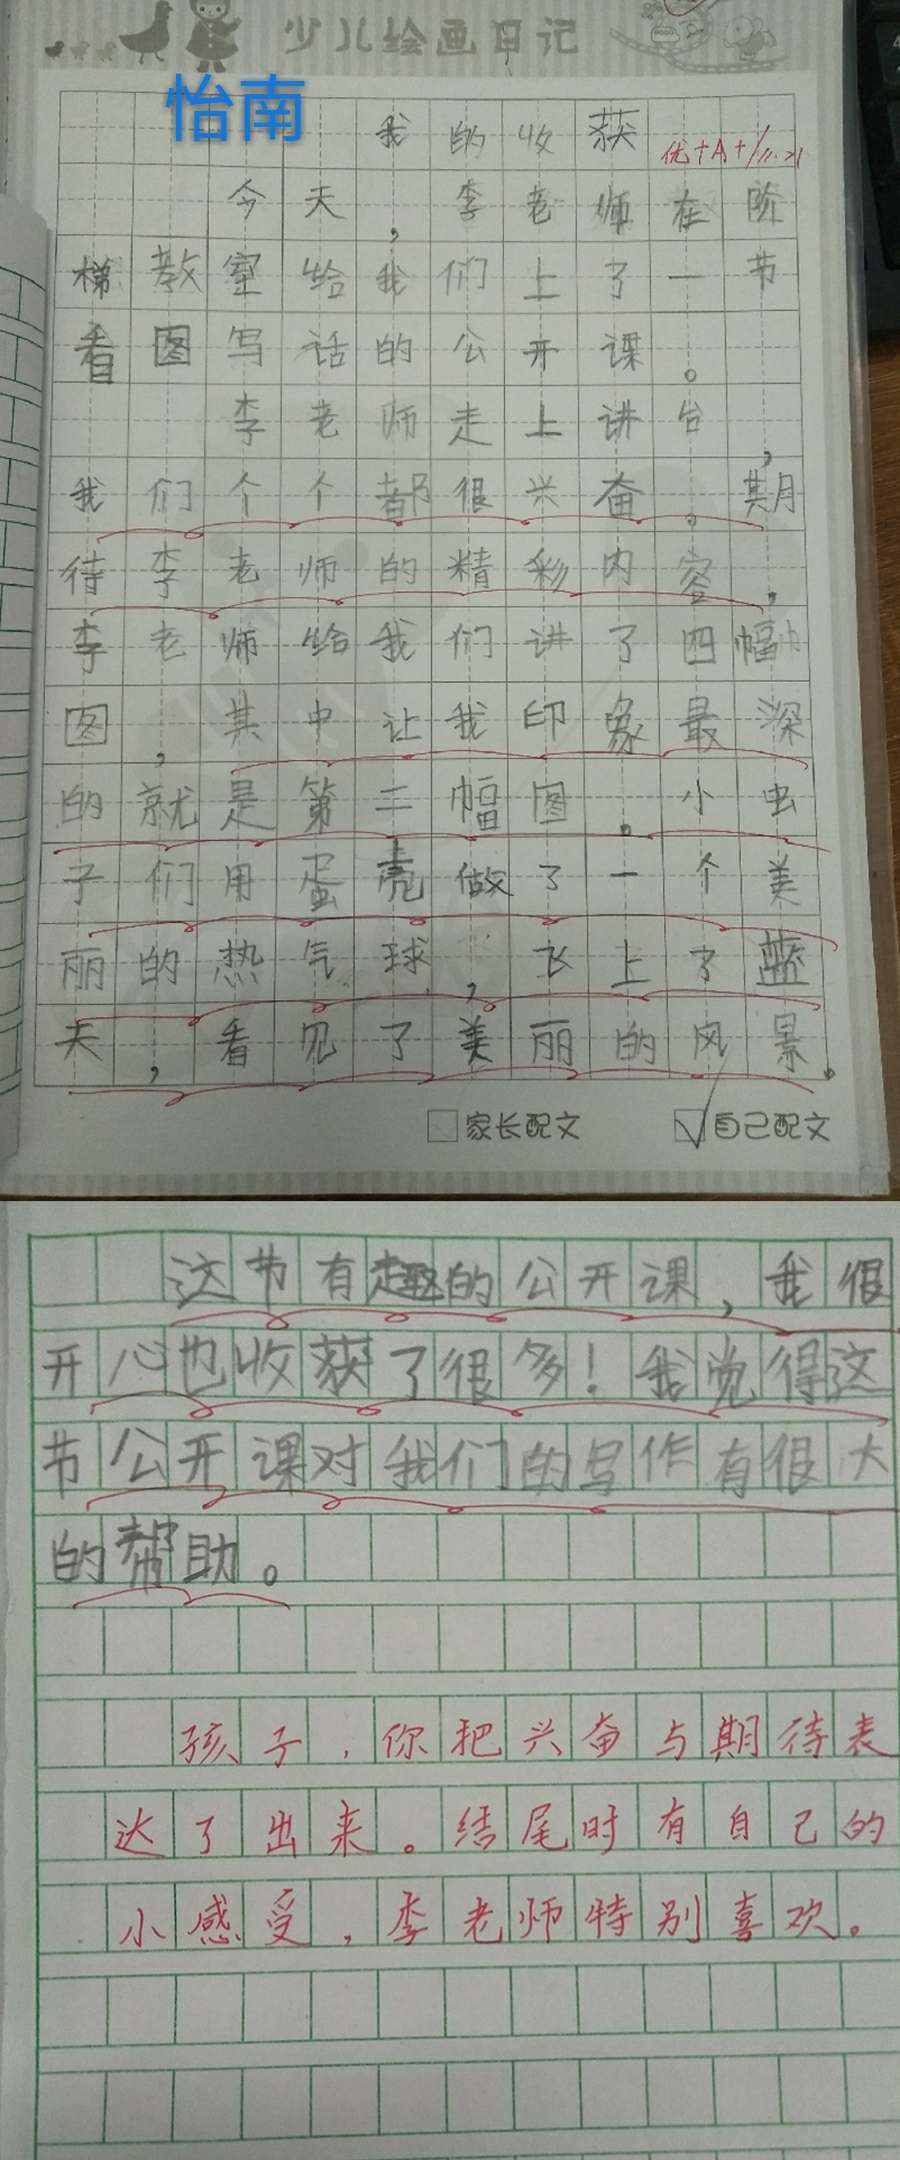 少儿绘画日记
怡南
我的收获
优+A+ 11.21
今天，李老师在阶
梯教室给我们上了一节
看图写话的公开课。
李老师走上讲台，
我们个个都很兴奋。期
待李老师的精彩内容，
李老师给我们讲了四幅
图，其中让我印象最深
的就是第二幅图。小虫
子们用蛋壳做了一个美
丽的热气球，飞上了蓝
天，看见了美丽的风景。
家长配文 自己配文
这节有趣的公开课，我很
开心也收获了很多！我觉得这
节公开课对我们的写作有很大
的帮助。
孩子，你把兴奋与期待表
达了出来。结尾时有自己的
小感受，李老师特别喜欢。